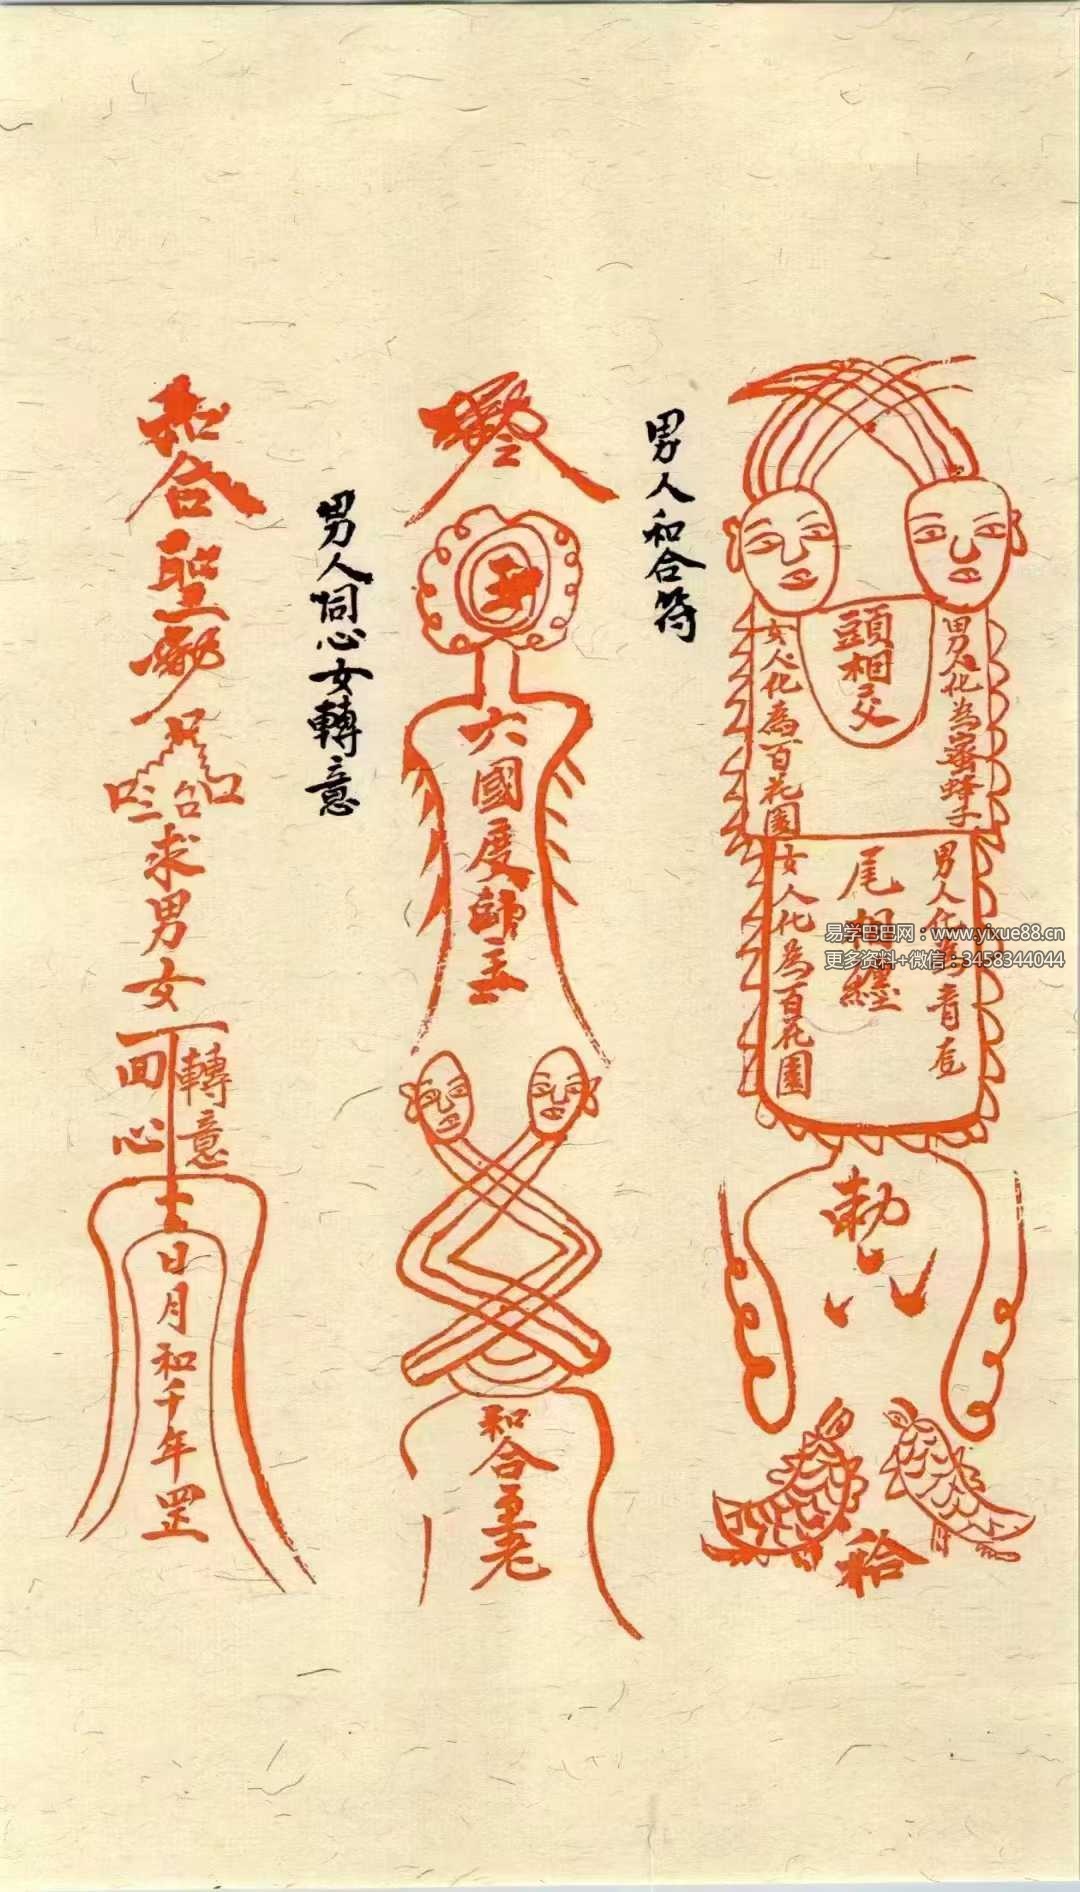 頭相交
男人化為蜜蜂子
女人化為百花園
尾相纏
女人化為百花園
勅
男人和合符
六國度師主
和合
老
男人同心女轉意
和合聖
求男女
轉意
回心
日月和千年罡
易学巴巴网：www.yixue88.cn
更多资料+微信：3458344044